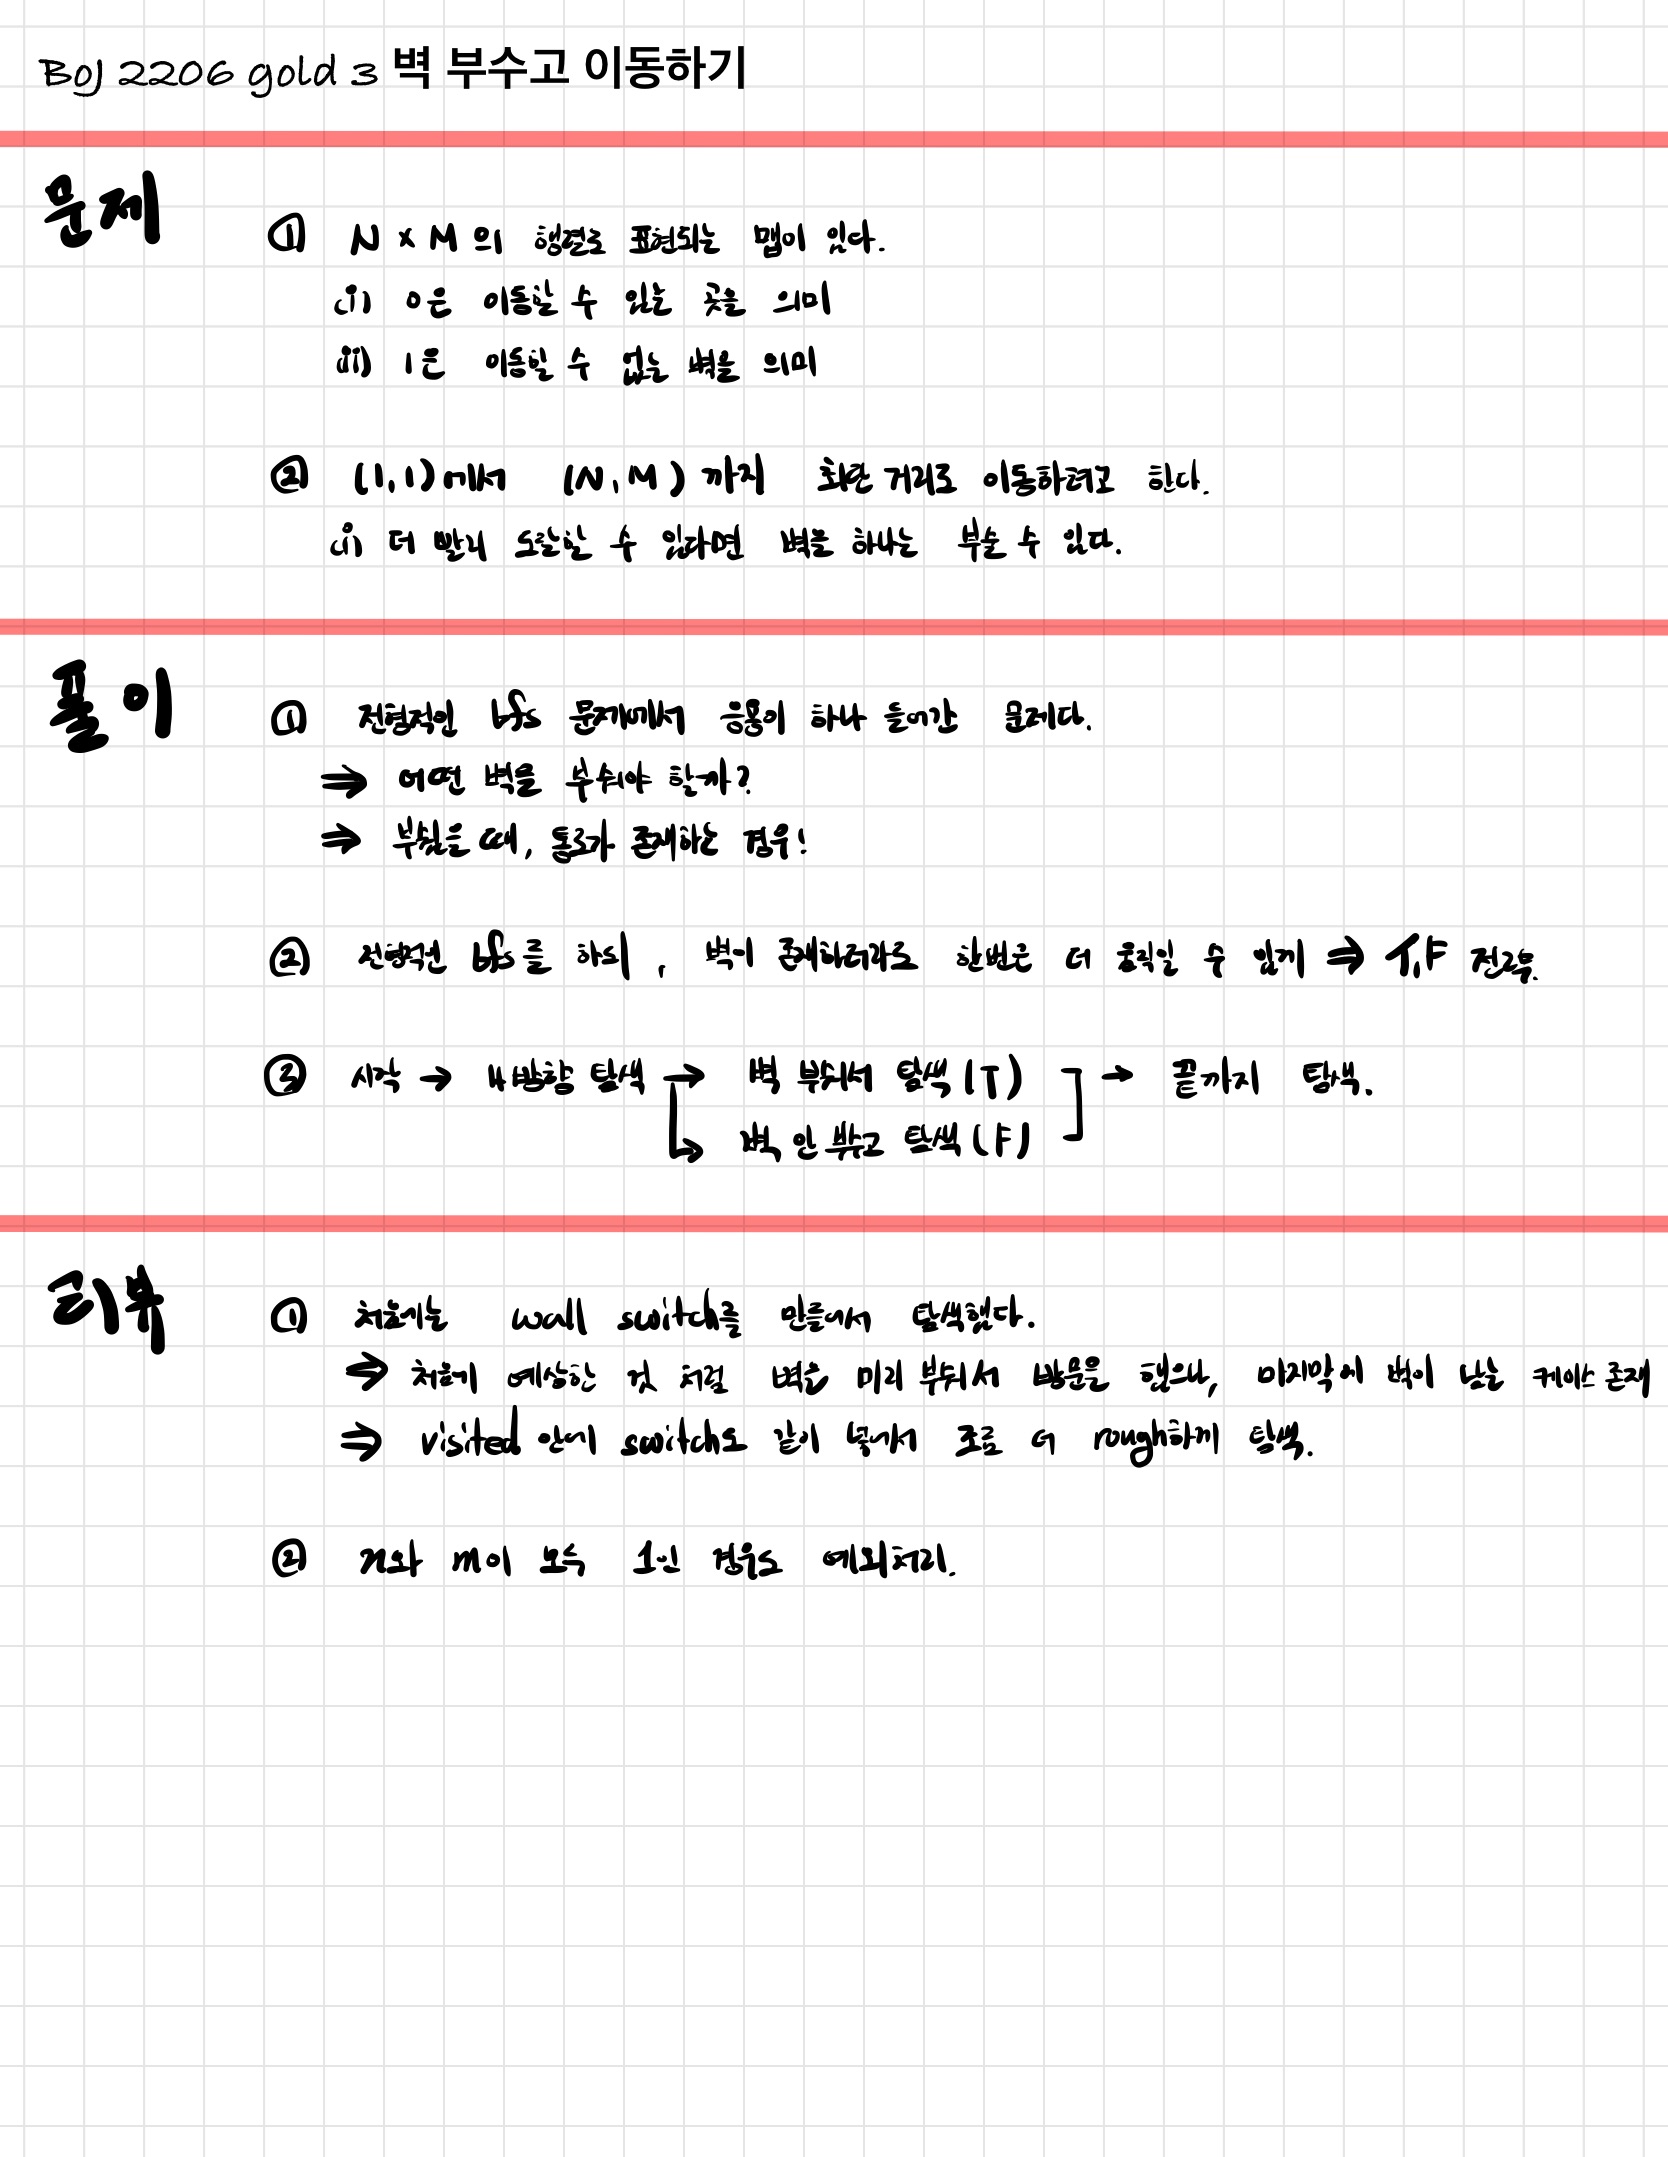 BOJ 2206 gold 3 벽 부수고 이동하기
문제
① N x M의 행렬로 표현되는 맵이 있다.
(i) 0은 이동할 수 있는 곳을 의미
(ii) 1은 이동할 수 없는 벽을 의미
② (1,1)에서 (N,M) 까지 최단 거리로 이동하려고 한다.
(i) 더 빨리 도달할 수 있다면 벽을 하나는 부술 수 있다.
풀이
① 전형적인 bfs 문제에서 응용이 하나 들어간 문제다.
⇒ 어떤 벽을 부숴야 할까?
⇒ 부쉈을 때, 통로가 존재하는 경우!
② 전형적인 bfs를 하되, 벽이 존재하더라도 한번은 더 움직일 수 있게 ⇒ T,F 전략.
③ 시작 → 4방향 탐색 → 벽 부숴서 탐색(T) → 끝까지 탐색.
↳ 벽 안 부수고 탐색(F)
리뷰
① 처음에는 wall switch를 만들어서 탐색했다.
⇒ 처음에 예상한 것 처럼 벽을 미리 부숴서 방문을 했으나, 마지막에 벽이 남는 케이스 존재
⇒ visited 안에 switch도 같이 넣어서 조금 더 rough하게 탐색.
② n와 m이 모두 1인 경우도 예외처리.